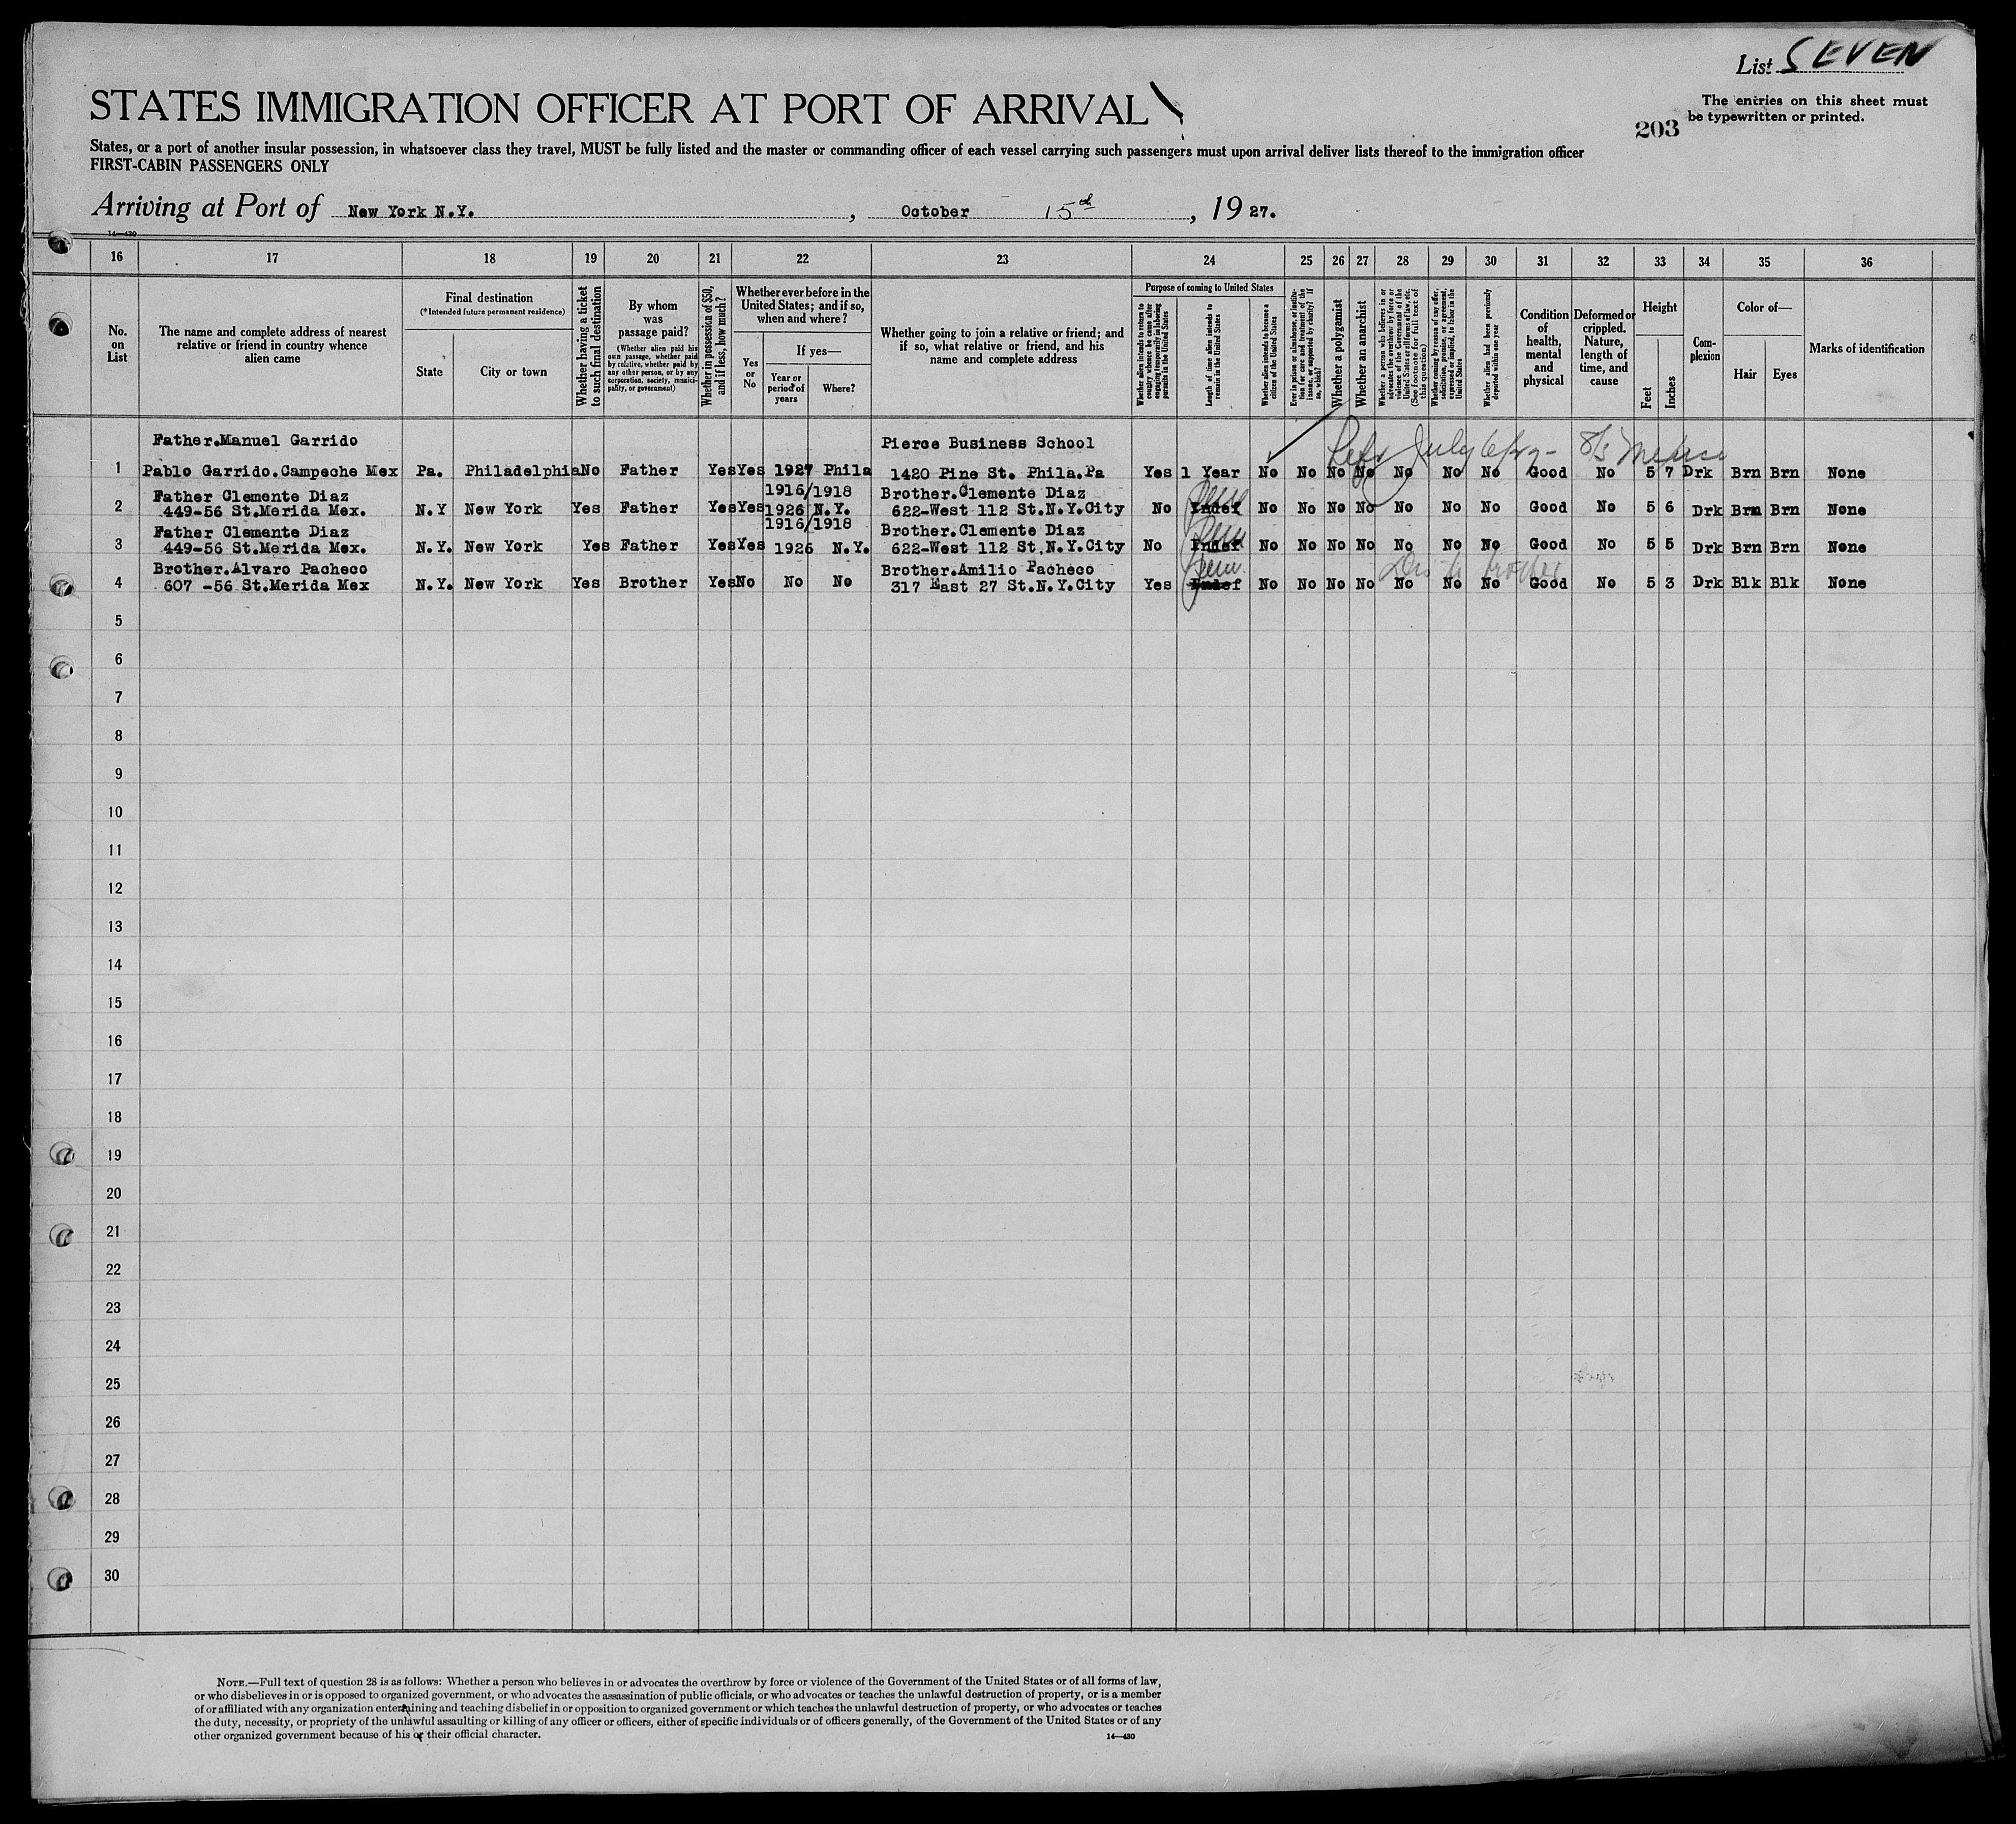 List SEVEN
STATES IMMIGRATION OFFICER AT PORT OF ARRIVAL
The entries on this sheet must
be typewritten or printed.
203
States, or a port of another insular possession, in whatsoever class they travel, MUST be fully listed and the master or commanding officer of each vessel carrying such passengers must upon arrival deliver lists thereof to the immigration officer
FIRST-CABIN PASSENGERS ONLY
Arriving at Port of New York N.Y. , October 15th , 1927.
14—430
16 17 18 19 20 21 22 23 24 25 26 27 28 29 30 31 32 33 34 35 36
No.
on
List
The name and complete address of nearest
relative or friend in country whence
alien came
Final destination
(*Intended future permanent residence)
State
City or town
Whether having a ticket
to such final destination
By whom
was
passage paid?
(Whether alien paid his
own passage, whether paid
by relative, whether paid by
any other person, or by any
corporation, society, munici-
pality, or government)
Whether in possession of $50,
and if less, how much?
Whether ever before in the
United States; and if so,
when and where?
Yes
or
No
If yes—
Year or
period of
years
Where?
Whether going to join a relative or friend; and
if so, what relative or friend, and his
name and complete address
Purpose of coming to United States
Whether alien intends to return to
country whence he came after
engaging temporarily in laboring
pursuits in the United States
Length of time alien intends to
remain in the United States
Whether alien intends to become a
citizen of the United States
Ever in prison or almshouse, or institu-
tion for care and treatment of the
insane, or supported by charity? If
so, which?
Whether a polygamist
Whether an anarchist
Whether a person who believes in or
advocates the overthrow by force or
violence of the Government of the
United States or all forms of law, etc.
(See footnote for full text of
this question)
Whether coming by reason of any offer,
solicitation, promise, or agreement,
expressed or implied, to labor in the
United States
Whether alien had been previously
deported within one year
Condition
of
health,
mental
and
physical
Deformed or
crippled.
Nature,
length of
time, and
cause
Height
Feet
Inches
Com-
plexion
Color of—
Hair
Eyes
Marks of identification
Father.Manuel Garrido Pierce Business School
July 8/5 Mexico
1 Pablo Garrido.Campeche Mex Pa. Philadelphia No Father Yes Yes 1927 Phila 1420 Pine St. Phila.Pa Yes 1 Year No No No No No No No Good No 5 7 Drk Brn Brn None
Father Clemente Diaz 1916/1918 Brother.Clemente Diaz
2 449-56 St.Merida Mex. N.Y New York Yes Father Yes Yes 1926 N.Y. 622-West 112 St.N.Y.City No Indef No No No No No No No Good No 5 6 Drk Brn Brn None
Father Clemente Diaz 1916/1918 Brother.Clemente Diaz
3 449-56 St.Merida Mex. N.Y. New York Yes Father Yes Yes 1926 N.Y. 622-West 112 St.N.Y.City No Indef No No No No No No No Good No 5 5 Drk Brn Brn None
Brother.Alvaro Pacheco Brother.Amilio Pacheco
4 607 -56 St.Merida Mex N.Y. New York Yes Brother Yes No No No 317 East 27 St.N.Y.City Yes Indef No No No No No No No Good No 5 3 Drk Blk Blk None
5
6
7
8
9
10
11
12
13
14
15
16
17
18
19
20
21
22
23
24
25
26
27
28
29
30
NOTE.—Full text of question 28 is as follows: Whether a person who believes in or advocates the overthrow by force or violence of the Government of the United States or of all forms of law,
or who disbelieves in or is opposed to organized government, or who advocates the assassination of public officials, or who advocates or teaches the unlawful destruction of property, or is a member
of or affiliated with any organization entertaining and teaching disbelief in or opposition to organized government or which teaches the unlawful destruction of property, or who advocates or teaches
the duty, necessity, or propriety of the unlawful assaulting or killing of any officer or officers, either of specific individuals or of officers generally, of the Government of the United States or of any
other organized government because of his or their official character.
14—430